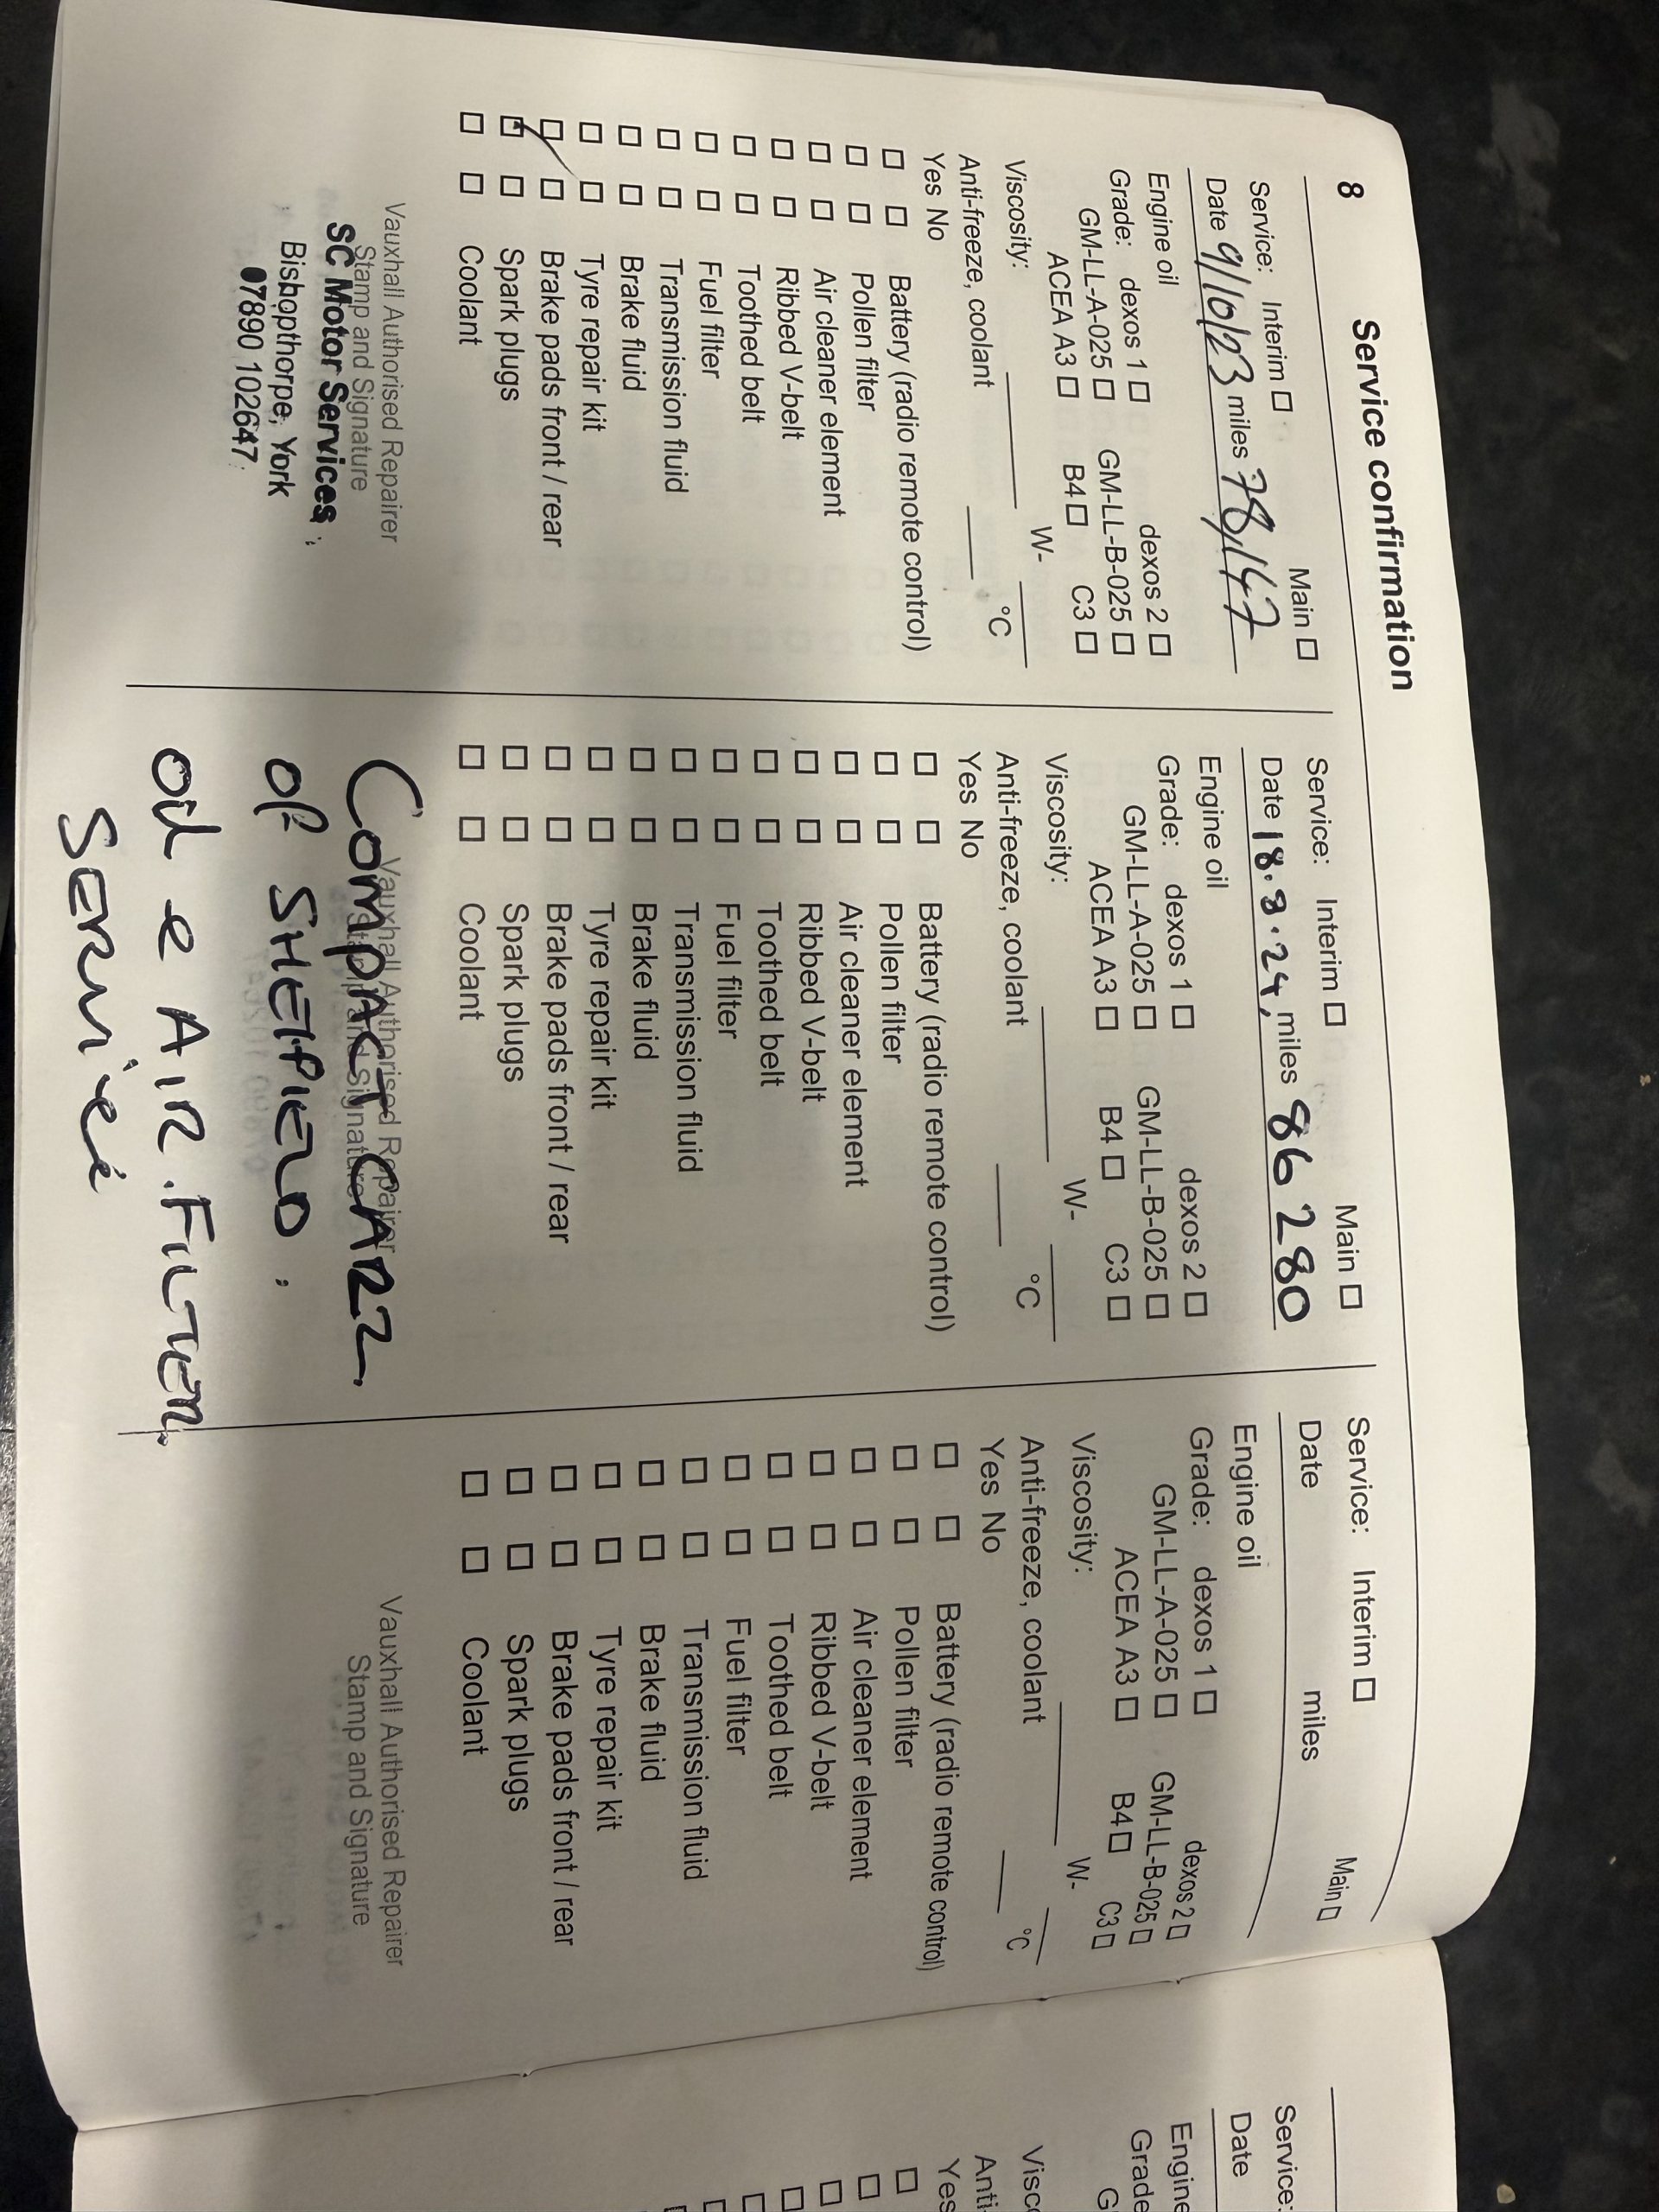 8 Service confirmation
Service: Interim □ Main □
Date 9/10/23 miles 78,147
Engine oil
Grade: dexos 1 □ dexos 2 □
GM-LL-A-025 □ GM-LL-B-025 □
ACEA A3 □ B4 □ C3 □
Viscosity: W-
Anti-freeze, coolant °C
Yes No
□ □ Battery (radio remote control)
□ □ Pollen filter
□ □ Air cleaner element
□ □ Ribbed V-belt
□ □ Toothed belt
□ □ Fuel filter
□ □ Transmission fluid
□ □ Brake fluid
□ □ Tyre repair kit
□ □ Brake pads front / rear
☑ □ Spark plugs
□ □ Coolant
Vauxhall Authorised Repairer
Stamp and Signature
SC Motor Services
Bishopthorpe, York
07890 102647
Service: Interim □ Main □
Date 18.8.24, miles 86280
Engine oil
Grade: dexos 1 □ dexos 2 □
GM-LL-A-025 □ GM-LL-B-025 □
ACEA A3 □ B4 □ C3 □
Viscosity: W-
Anti-freeze, coolant °C
Yes No
□ □ Battery (radio remote control)
□ □ Pollen filter
□ □ Air cleaner element
□ □ Ribbed V-belt
□ □ Toothed belt
□ □ Fuel filter
□ □ Transmission fluid
□ □ Brake fluid
□ □ Tyre repair kit
□ □ Brake pads front / rear
□ □ Spark plugs
□ □ Coolant
Vauxhall Authorised Repairer
Stamp and Signature
Compact CARZ
of SHEFFIELD.
oil e AIR.FILTER.
SERvicé
Service: Interim □ Main □
Date miles
Engine oil
Grade: dexos 1 □ dexos 2 □
GM-LL-A-025 □ GM-LL-B-025 □
ACEA A3 □ B4 □ C3 □
Viscosity: W-
Anti-freeze, coolant °C
Yes No
□ □ Battery (radio remote control)
□ □ Pollen filter
□ □ Air cleaner element
□ □ Ribbed V-belt
□ □ Toothed belt
□ □ Fuel filter
□ □ Transmission fluid
□ □ Brake fluid
□ □ Tyre repair kit
□ □ Brake pads front / rear
□ □ Spark plugs
□ □ Coolant
Vauxhall Authorised Repairer
Stamp and Signature
Service:
Date
Engine
Grade
Yes